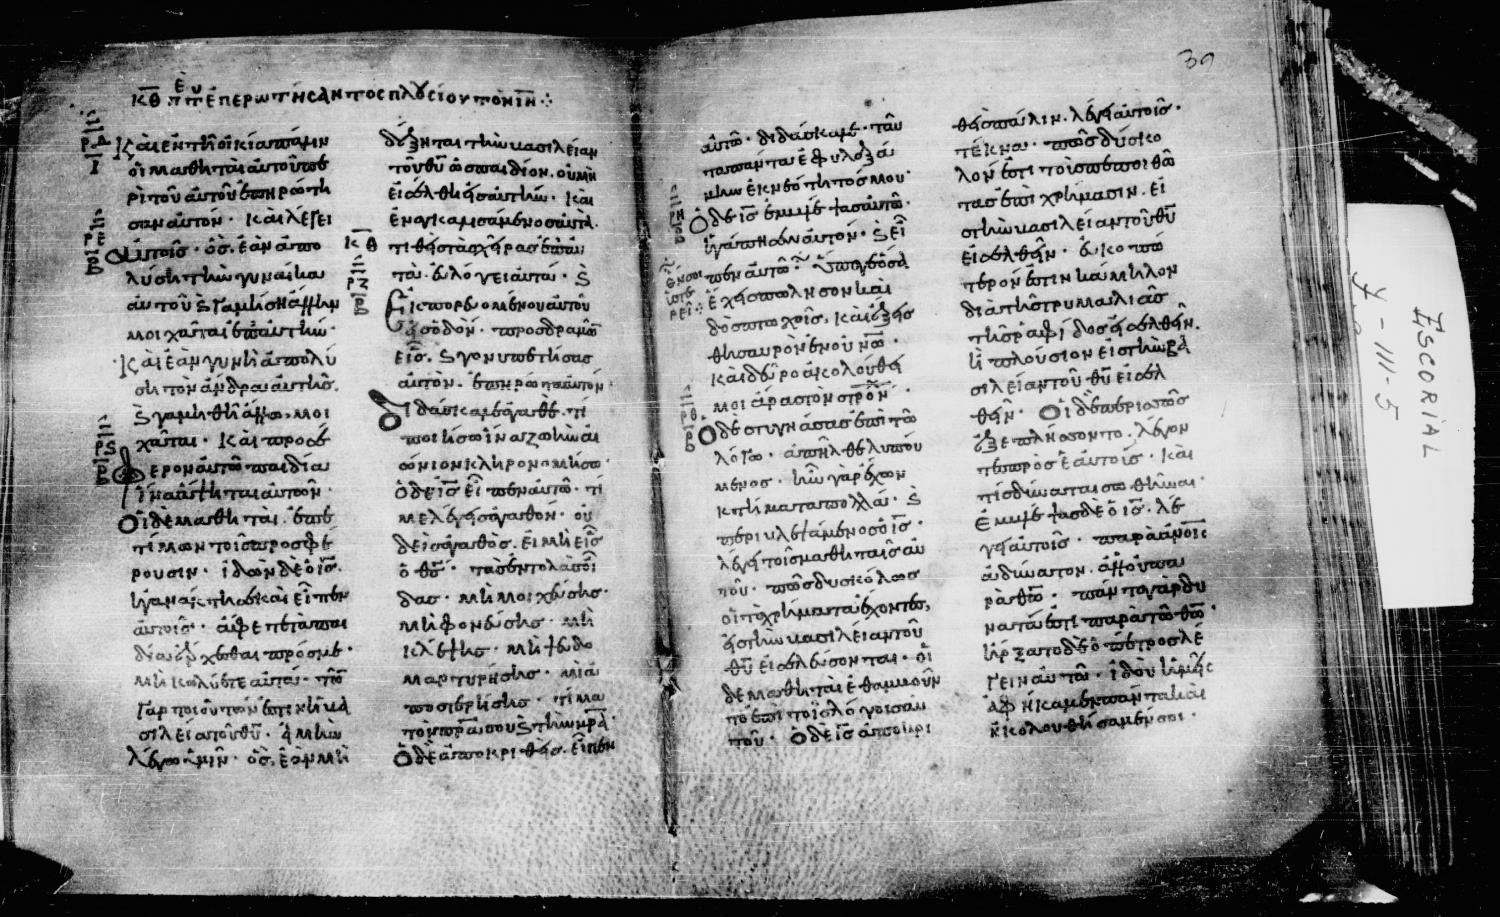 κθ π ἐπερωτήσαντος πλουσίου τὸν ιν
Καὶ ἐν τῆ οἰκία πάλιν
οἱ μαθηταὶ αὐτοῦ πε
ρὶ τοῦ αὐτοῦ ἐπηρώτη
σαν αὐτόν · Καὶ λέγει
αὐτοῖς · ὃς ἐὰν ἀπο
λύση τὴν γυναῖκα
αὐτοῦ ϛ γαμήση ἄλλην
μοιχᾶται ἐπ' αὐτήν ·
Καὶ ἐὰν γυνὴ ἀπολύ
ση τὸν ἄνδρα αὐτῆς.
ϛ γαμηθῆ ἄλλω, μοι
χᾶται · Καὶ προσέ
φερον αὐτῶ παιδία
ἵνα ἅψηται αὐτῶν ·
Οἱ δὲ μαθηταὶ · ἐπε
τίμων τοῖς προσφέ
ρουσιν · ἰδὼν δὲ ὁ ις ·
ἠγανάκτησε καὶ εἶπεν
αὐτοῖς · ἄφετε τὰ παι
δία ἔρχεσθαι πρός με ·
μὴ κωλύετε αὐτά · τῶν
γὰρ τοιούτων ἐστὶν ἡ βα
σιλεία τοῦ θυ · ἀμὴν
λέγω ὑμῖν · ὃς ἐὰν μὴ
δέξηται τὴν βασιλείαν
τοῦ θυ ὡς παιδίον. οὐ μὴ
εἰσέλθη εἰς αὐτήν · Καὶ
ἐναγκαλισάμενος αὐτὰ ·
τιθεὶς τὰς χεῖρας ἐπ' αὐ
τὰ · εὐλόγει αὐτά · ϛ
Ἐκπορευομένου αὐτοῦ
εἰς ὁδόν · προσδραμὼν
εἷς. ϛ γονυπετήσας
αὐτὸν · ἐπηρώτα αὐτόν ·
Διδάσκαλε ἀγαθὲ · τί
ποιήσω ἵνα ζωὴν αἰ
ώνιον κληρονομήσω ·
Ὁ δὲ ις εἶπεν αὐτῶ · τί
με λέγεις ἀγαθόν · οὐ
δεὶς ἀγαθὸς. εἰ μὴ εἷς
ὁ θς · τὰς ἐντολὰς οἶ
δας · μὴ μοιχεύσης ·
μὴ φονεύσης · μὴ
κλέψης · μὴ ψευδο
μαρτυρήσης · μὴ ἀ
ποστερήσης · τίμα
τὸν πρα σου ϛ τὴν μρα ·
Ὁ δὲ ἀποκριθεὶς. εἶπεν
39
αὐτῶ · διδάσκαλε · ταῦ
τα πάντα ἐφυλαξά
μην ἐκ νεότητός μου ·
Ὁ δὲ ις ἐμβλέψας αὐτῶ ·
ἠγάπησεν αὐτὸν · ϛ εἶ
πεν αὐτῶ · ὕπαγε ὅσα
ἔχεις πώλησον καὶ
δὸς πτωχοῖς, καὶ ἕξεις
θησαυρὸν ἐν οὐνω ·
καὶ δεῦρο ἀκολούθει
μοι ἄρας τὸν στρον ·
Ὁ δὲ στυγνάσας ἐπὶ τῶ
λόγω · ἀπῆλθε λυπού
μενος · ἦν γὰρ ἔχων
κτήματα πολλά · ϛ
περιβλεψάμενος ὁ ις ·
λέγει τοῖς μαθηταῖς αὐ
τοῦ · πῶς δυσκόλως
οἱ τὰ χρήματα ἔχοντες,
εἰς τὴν βασιλείαν τοῦ
θυ εἰσελεύσονται · οἱ
δὲ μαθηταὶ ἐθαμβοῦν
το ἐπὶ τοῖς λόγοις αὐ
τοῦ · Ὁ δὲ ις ἀποκρι
θεὶς πάλιν · λέγει αὐτοῖς ·
τέκνα · πῶς δύσκο
λόν ἐστι τοὺς πεποιθό
τας ἐπὶ χρήμασιν · εἰ
ς τὴν βασιλείαν τοῦ θυ
εἰσελθεῖν · εὐκοπώ
τερόν ἐστιν κάμηλον
διὰ τῆς τρυμαλιᾶς
τῆς ῥαφίδος εἰσελθεῖν.
ἢ πλούσιον εἰς τὴν βα
σιλείαν τοῦ θυ εἰσελ
θεῖν · Οἱ δὲ περισσῶς
ἐξεπλήσσοντο. λέγον
τες πρὸς ἑαυτούς · καὶ
τίς δύναται σωθῆναι ·
ἐμβλέψας δὲ ὁ ις · λέ
γει αὐτοῖς · παρὰ ἀνοις
ἀδύνατον · ἀλλ' οὐ πα
ρὰ θω · πάντα γὰρ δυ
νατά ἐστι παρὰ τῶ θω ·
ἤρξατο δὲ ὁ πέτρος λέ
γειν αὐτῶ · ἰδοὺ ἡμεῖς
ἀφήκαμεν πάντα καὶ
ἠκολουθήσαμέν σοι ·
ESCORIAL
Y-III-5